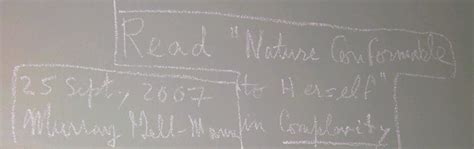 Read "Nature Conformable
to Herself"
in Complexity
25 Sept, 2007
Murray Gell-Mann